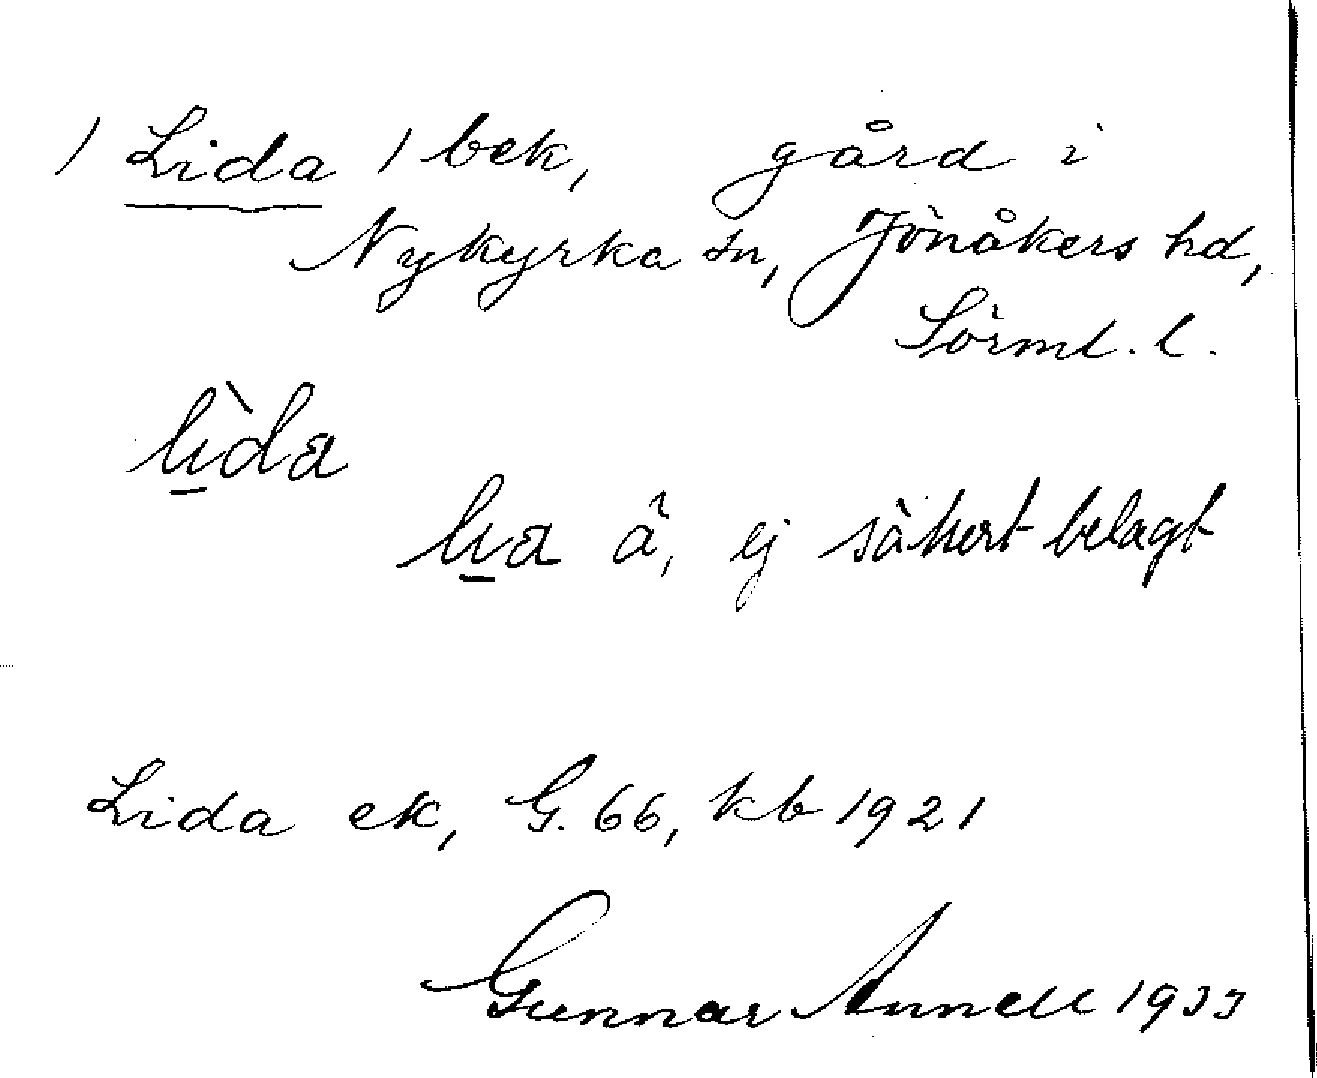 / Lida / bek, gård i
Nykyrka sn, Jönåkers hd,
Sörml. l.
lìda
lia å, ej säkert belagt
Lida ek, G. 66, kb 1921
Gunnar Annell 1933